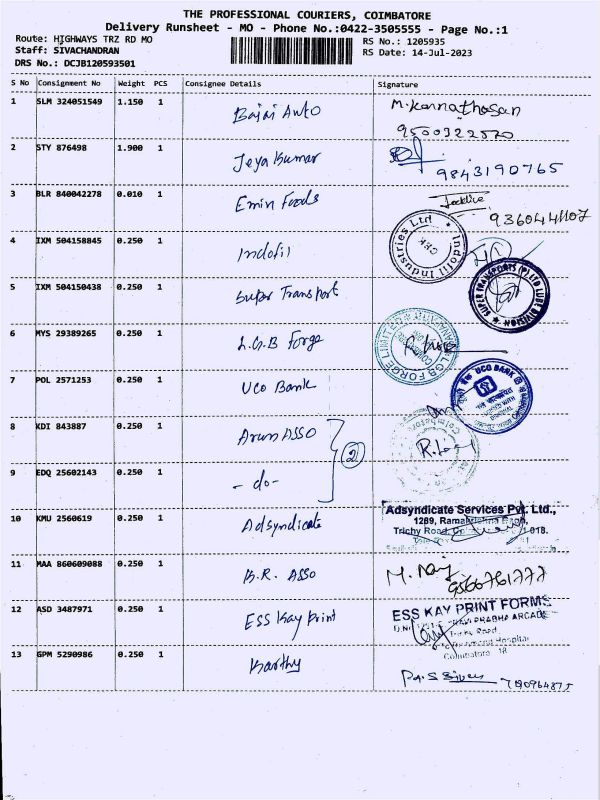 THE PROFESSIONAL COURIERS, COIMBATORE
Delivery Runsheet - MO - Phone No.:0422-3505555 - Page No.:1
Route: HIGHWAYS TRZ RD MO
RS No.: 1205935
Staff: SIVACHANDRAN
RS Date: 14-Jul-2023
DRS No.: DCJB120593501
S No Consignment No Weight PCS Consignee Details Signature
1 SLM 324051549 1.150 1 Bajaj Auto
9500322520
2 STY 876498 1.900 1 Jeya Kumar 9843190765
3 BLR 840042278 0.010 1 Emin Foods
4 IXM 504158845 0.250 1 Indofil
Indofil Industries Ltd
5 IXM 504150438 0.250 1 Super Transport
SUPER TRANSPORTS (P) LTD LUBE DIVISION
6 MYS 29389265 0.250 1 L.G.B Forge
LGB FORGE LIMITED
7 POL 2571253 0.250 1 UCO Bank
UCO BANK
8 KDI 843887 0.250 1 Arun ASSO
2
9 EDQ 25602143 0.250 1 - do -
10 KMU 2560619 0.250 1 Adsyndicate
Adsyndicate Services Pvt. Ltd.,
1289, Ramakrishna
Trichy Road,
11 MAA 860609088 0.250 1 K.R. ASSO
12 ASD 3487971 0.250 1 ESS Kay Print
ESS KAY PRINT FORMS
PRABHA ARCADE
Road
Hospital
Coimbatore 18
13 GPM 5290986 0.250 1 Karthy